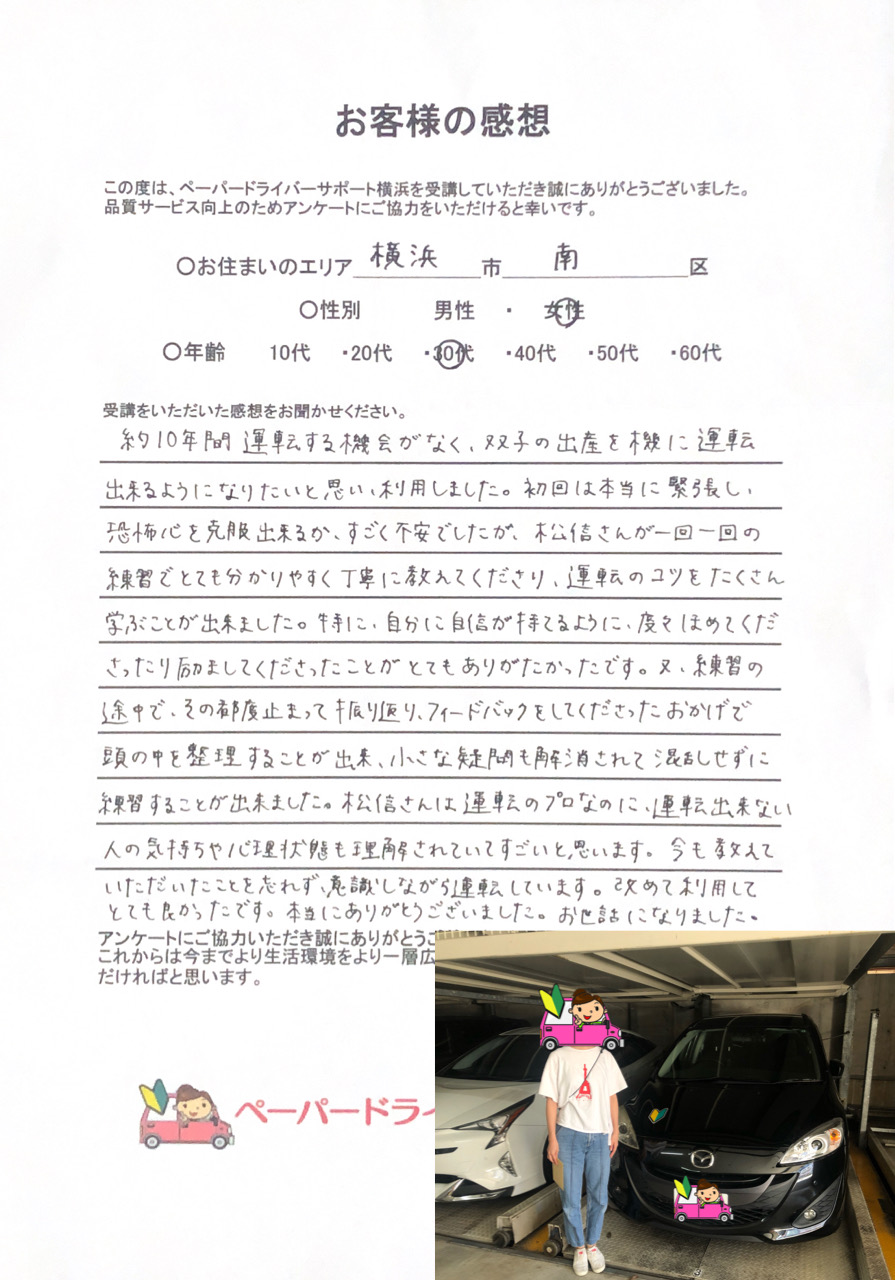 お客様の感想
この度は、ペーパードライバーサポート横浜を受講していただき誠にありがとうございました。
品質サービス向上のためアンケートにご協力をいただけると幸いです。
〇お住まいのエリア 横浜 市 南 区
〇性別 男性 ・ 女性
〇年齢 10代 ・20代 ・30代 ・40代 ・50代 ・60代
受講をいただいた感想をお聞かせください。
約10年間運転する機会がなく、双子の出産を機に運転
出来るようになりたいと思い、利用しました。初回は本当に緊張し、
恐怖心を克服出来るか、すごく不安でしたが、松信さんが一回一回の
練習でとても分かりやすく丁寧に教えてくださり、運転のコツをたくさん
学ぶことが出来ました。特に、自分に自信が持てるように、度々ほめてくだ
さったり励ましてくださったことがとてもありがたかったです。又、練習の
途中で、その都度止まって振り返り、フィードバックをしてくださったおかげで
頭の中を整理することが出来、小さな疑問も解消されて混乱せずに
練習することが出来ました。松信さんは運転のプロなのに、運転出来ない
人の気持ちや心理状態も理解されていてすごいと思います。今も教えて
いただいたことを忘れず、意識しながら運転しています。改めて利用して
とても良かったです。本当にありがとうございました。お世話になりました。
アンケートにご協力いただき誠にありがとうご
これからは今までより生活環境をより一層広
だければと思います。
ペーパードライ